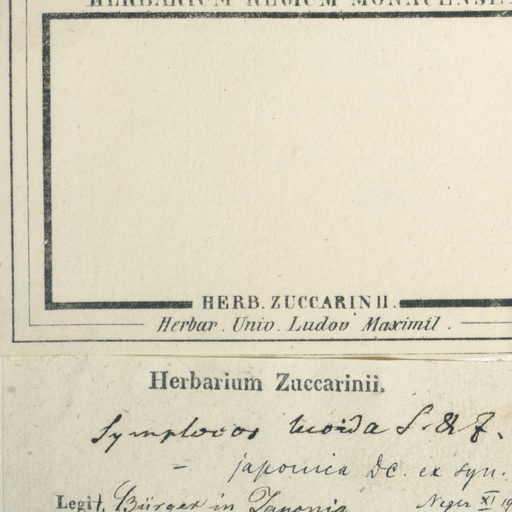 HERBARIUM REGIUM MONACENSE
HERB. ZUCCARINII.
Herbar. Univ. Ludov Maximil.
Herbarium Zuccarinii.
Symplocos lucida S. & Z.
– japonica DC. ex syn.
Legit. Bürger in Japonia
Neger XI 19